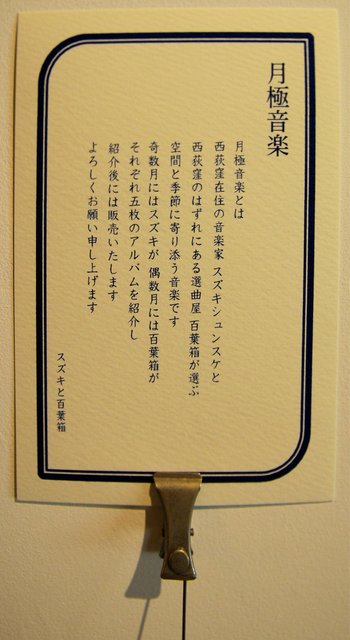 月極音楽
月極音楽とは
西荻窪在住の音楽家 スズキシュンスケと
西荻窪のはずれにある選曲屋 百葉箱が選ぶ
空間と季節に寄り添う音楽です
奇数月にはスズキが 偶数月には百葉箱が
それぞれ五枚のアルバムを紹介し
紹介後には販売いたします
よろしくお願い申し上げます
スズキと百葉箱